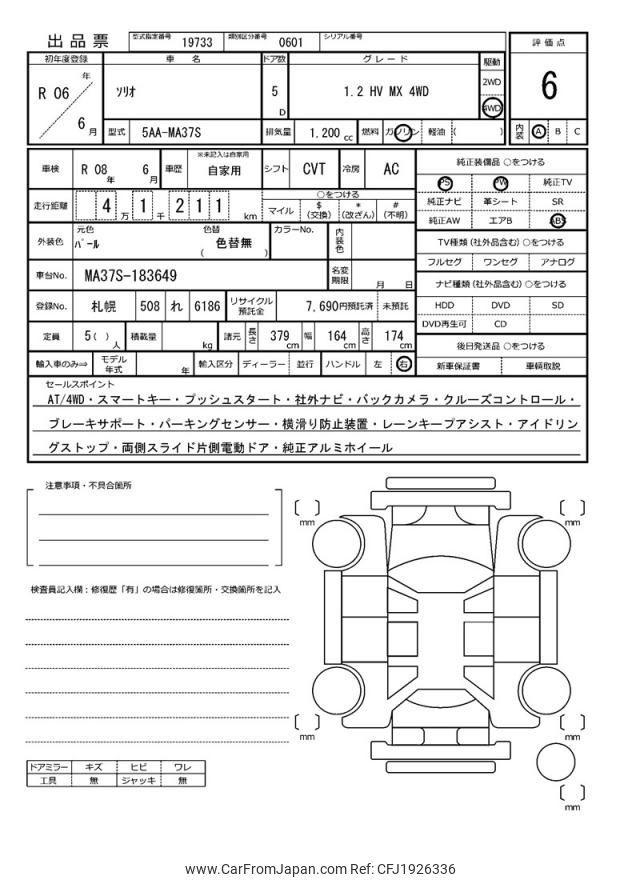 出品票 型式指定番号 19733 類別区分番号 0601 シリアル番号
評価点
6
内装 A B C
初年度登録 車名 ドア数 グレード 駆動
R 06 年 6 月 ソリオ 5 D 1.2 HV MX 4WD 2WD 4WD
型式 5AA-MA37S 排気量 1,200 cc 燃料 ガソリン 軽油 ( )
車検 R 08 年 6 月 車歴 ※未記入は自家用 自家用 シフト CVT 冷房 AC
走行距離 4 万 1 千 2 1 1 km ○をつける
マイル $ (交換) * (改ざん) # (不明)
外装色 元色 パール 色替 色替無 ( ) カラーNo. 内装色
車台No. MA37S-183649 名変期限 月 日
登録No. 札幌 508 れ 6186 リサイクル預託金 7,690円預託済 未預託
定員 5( ) 人 積載量 kg 諸元 長さ 379 cm 幅 164 cm 高さ 174 cm
輸入車のみ⇒ モデル年式 年 輸入区分 ディーラー 並行 ハンドル 左 右
純正装備品 ○をつける
PS PW 純正TV
純正ナビ 革シート SR
純正AW エアB ABS
TV種類 (社外品含む) ○をつける
フルセグ ワンセグ アナログ
ナビ種類 (社外品含む) ○をつける
HDD DVD SD
DVD再生可 CD
後日発送品 ○をつける
新車保証書 車輌取説
セールスポイント
AT/4WD・スマートキー・プッシュスタート・社外ナビ・バックカメラ・クルーズコントロール・
ブレーキサポート・パーキングセンサー・横滑り防止装置・レーンキープアシスト・アイドリン
グストップ・両側スライド片側電動ドア・純正アルミホイール
注意事項・不具合箇所
検査員記入欄：修復歴「有」の場合は修復箇所・交換箇所を記入
ドアミラー キズ ヒビ ワレ
工具 無 ジャッキ 無
mm
mm
mm
mm
mm
www.CarFromJapan.com Ref: CFJ1926336